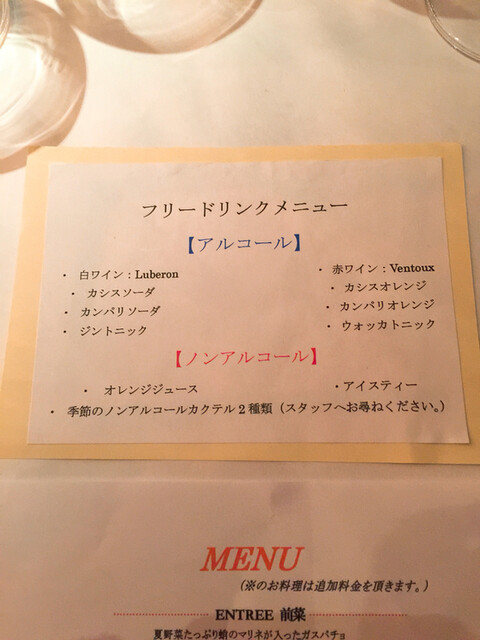 フリードリンクメニュー
【アルコール】
・ 白ワイン：Luberon ・ 赤ワイン：Ventoux
・ カシスソーダ ・ カシスオレンジ
・ カンパリソーダ ・ カンパリオレンジ
・ ジントニック ・ ウォッカトニック
【ノンアルコール】
・ オレンジジュース ・アイスティー
・ 季節のノンアルコールカクテル２種類（スタッフへお尋ねください。）
MENU
(※のお料理は追加料金を頂きます。)
ENTREE 前菜
夏野菜たっぷり蛸のマリネが入ったガスパチョ